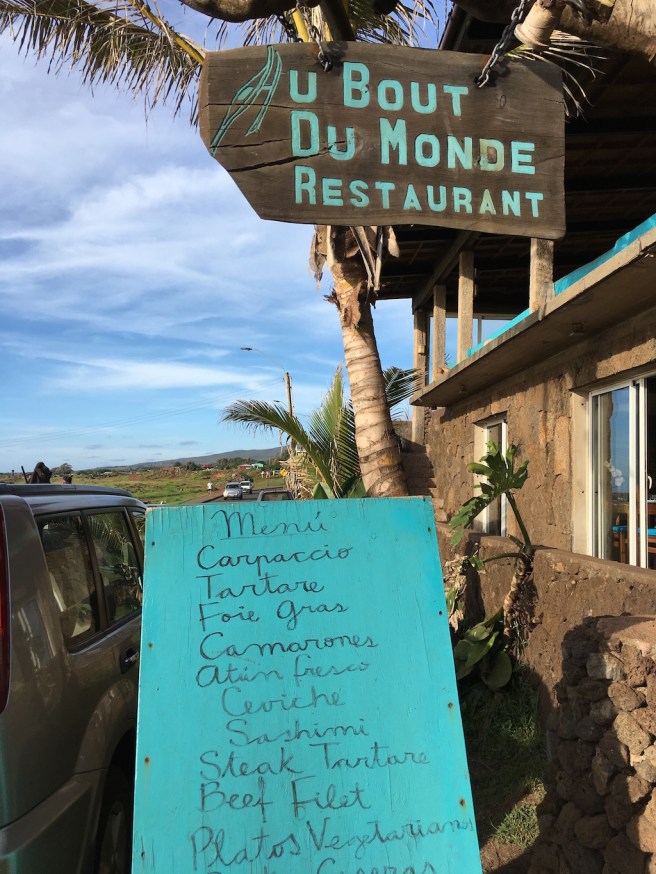 Au Bout
Du Monde
Restaurant
Menú
Carpaccio
Tartare
Foie gras
Camarones
atún fresco
Ceviche
Sashimi
Steak Tartare
Beef Filet
Platos Vegetarianos